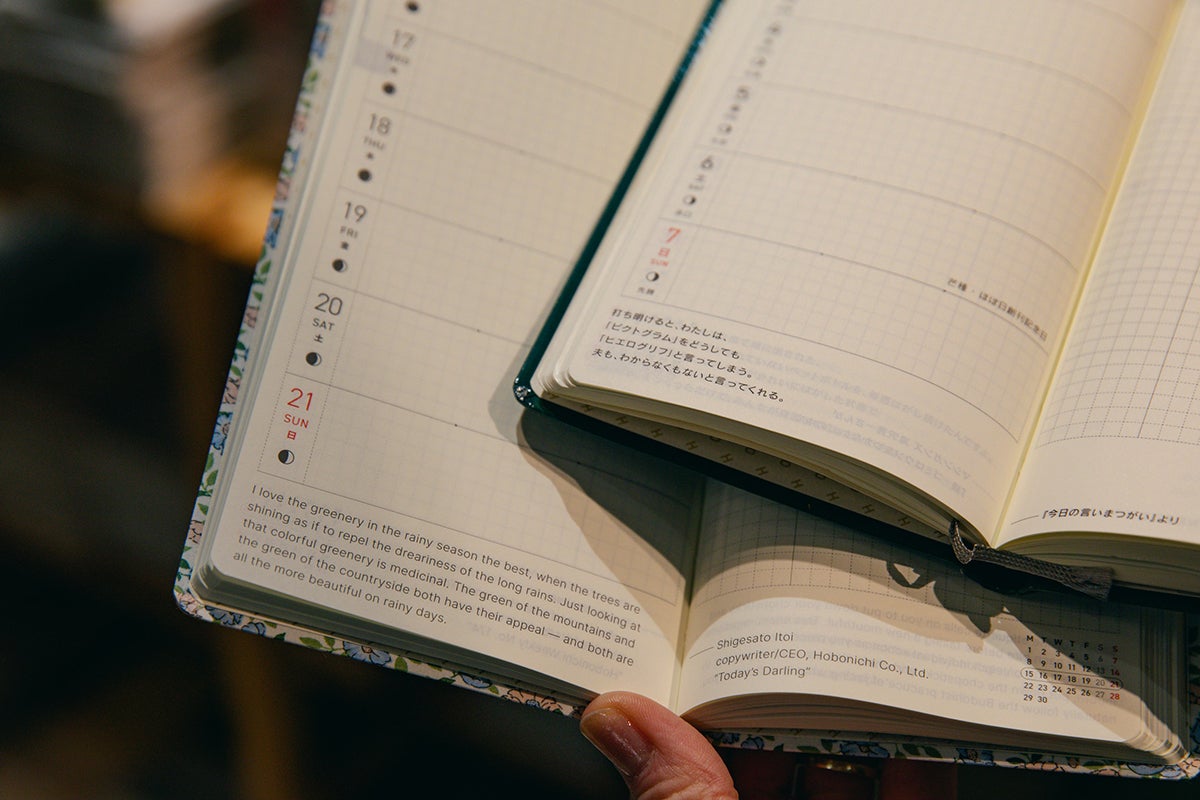 17
WED
水
18
THU
木
19
FRI
金
20
SAT
土
21
SUN
日
I love the greenery in the rainy season the best, when the trees are
shining as if to repel the dreariness of the long rains. Just looking at
that colorful greenery is medicinal. The green of the mountains and
the green of the countryside both have their appeal — and both are
all the more beautiful on rainy days.
Shigesato Itoi
copywriter/CEO, Hobonichi Co., Ltd.
"Today's Darling"
M T W T F S S
1 2 3 4 5 6 7
8 9 10 11 12 13 14
15 16 17 18 19 20 21
22 23 24 25 26 27 28
29 30
6
土
SAT
7
日
SUN
先勝
芒種・ほぼ日創刊記念日
打ち明けると、わたしは、
「ピクトグラム」をどうしても
「ヒエログリフ」と言ってしまう。
夫も、わからなくもないと言ってくれる。
『今日の言いまつがい』より